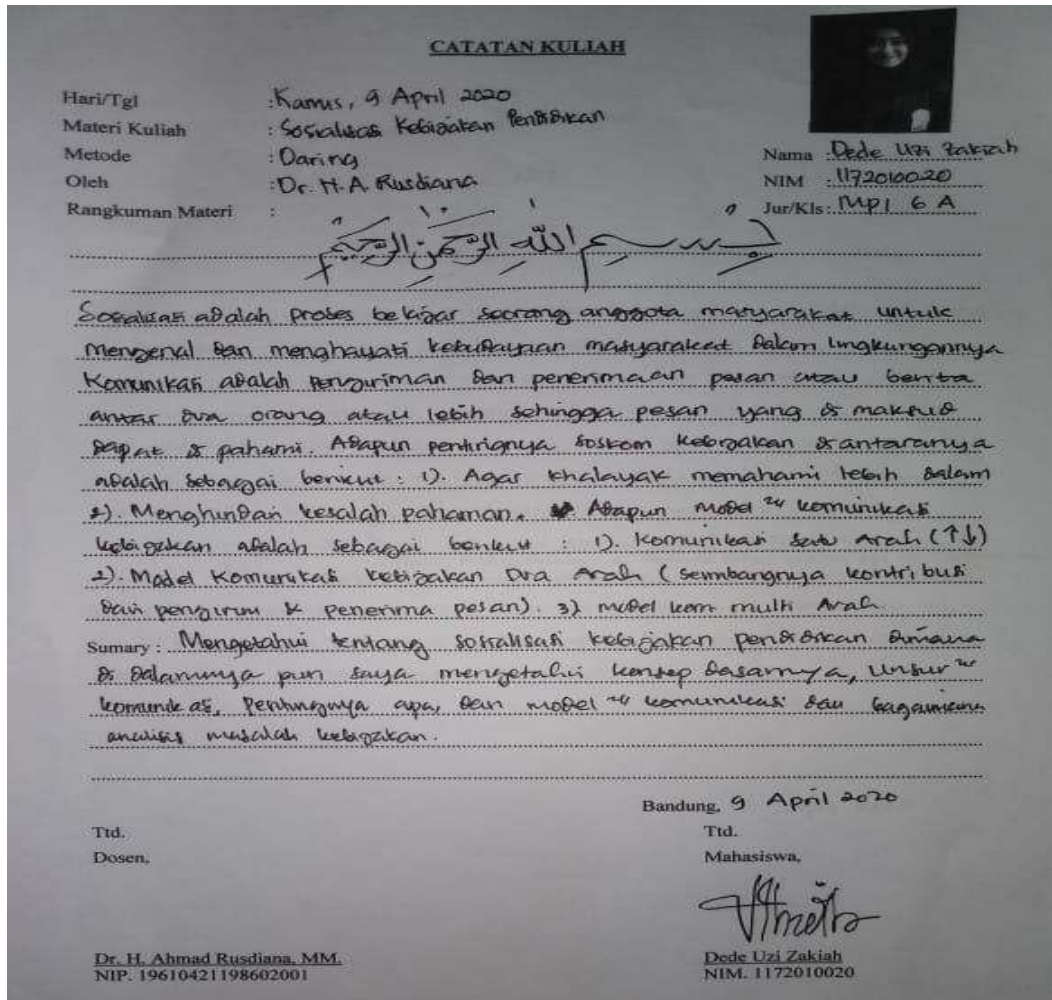 CATATAN KULIAH
Hari/Tgl : Kamis, 9 April 2020
Materi Kuliah : Sosialisasi Kebijakan Pendidikan
Metode : Daring
Oleh : Dr. H. A. Rusdiana
Rangkuman Materi :
Nama : Dede Uzi Zakiah
NIM : 1172010020
Jur/Kls : MPI 6 A
بسم الله الرحمن الرحيم
Sosialisasi adalah proses belajar seorang anggota masyarakat untuk
mengenal dan menghayati kebudayaan masyarakat dalam lingkungannya
Komunikasi adalah pengiriman dan penerimaan pesan atau berita
antar dua orang atau lebih sehingga pesan yang di maksud
dapat di pahami. Adapun pentingnya soskom kebijakan diantaranya
adalah sebagai berikut : 1). Agar khalayak memahami lebih dalam
2). Menghindari kesalah pahaman. Adapun model" komunikasi
kebijakan adalah sebagai berikut : 1). Komunikasi satu Arah (↑↓)
2). Model Komunikasi kebijakan Dua Arah (seimbangnya kontribusi
dari pengirim & penerima pesan). 3) model kom multi Arah
Sumary : Mengetahui tentang sosialisasi kebijakan pendidikan dimana
di dalamnya pun saya mengetahui konsep dasarnya, unsur"
komunikasi, Pentingnya apa, dan model" komunikasi dan bagaimana
analisis masalah kebijakan.
Bandung, 9 April 2020
Ttd.
Dosen,
Ttd.
Mahasiswa,
Dr. H. Ahmad Rusdiana, MM.
NIP. 19610421198602001
Dede Uzi Zakiah
NIM. 1172010020